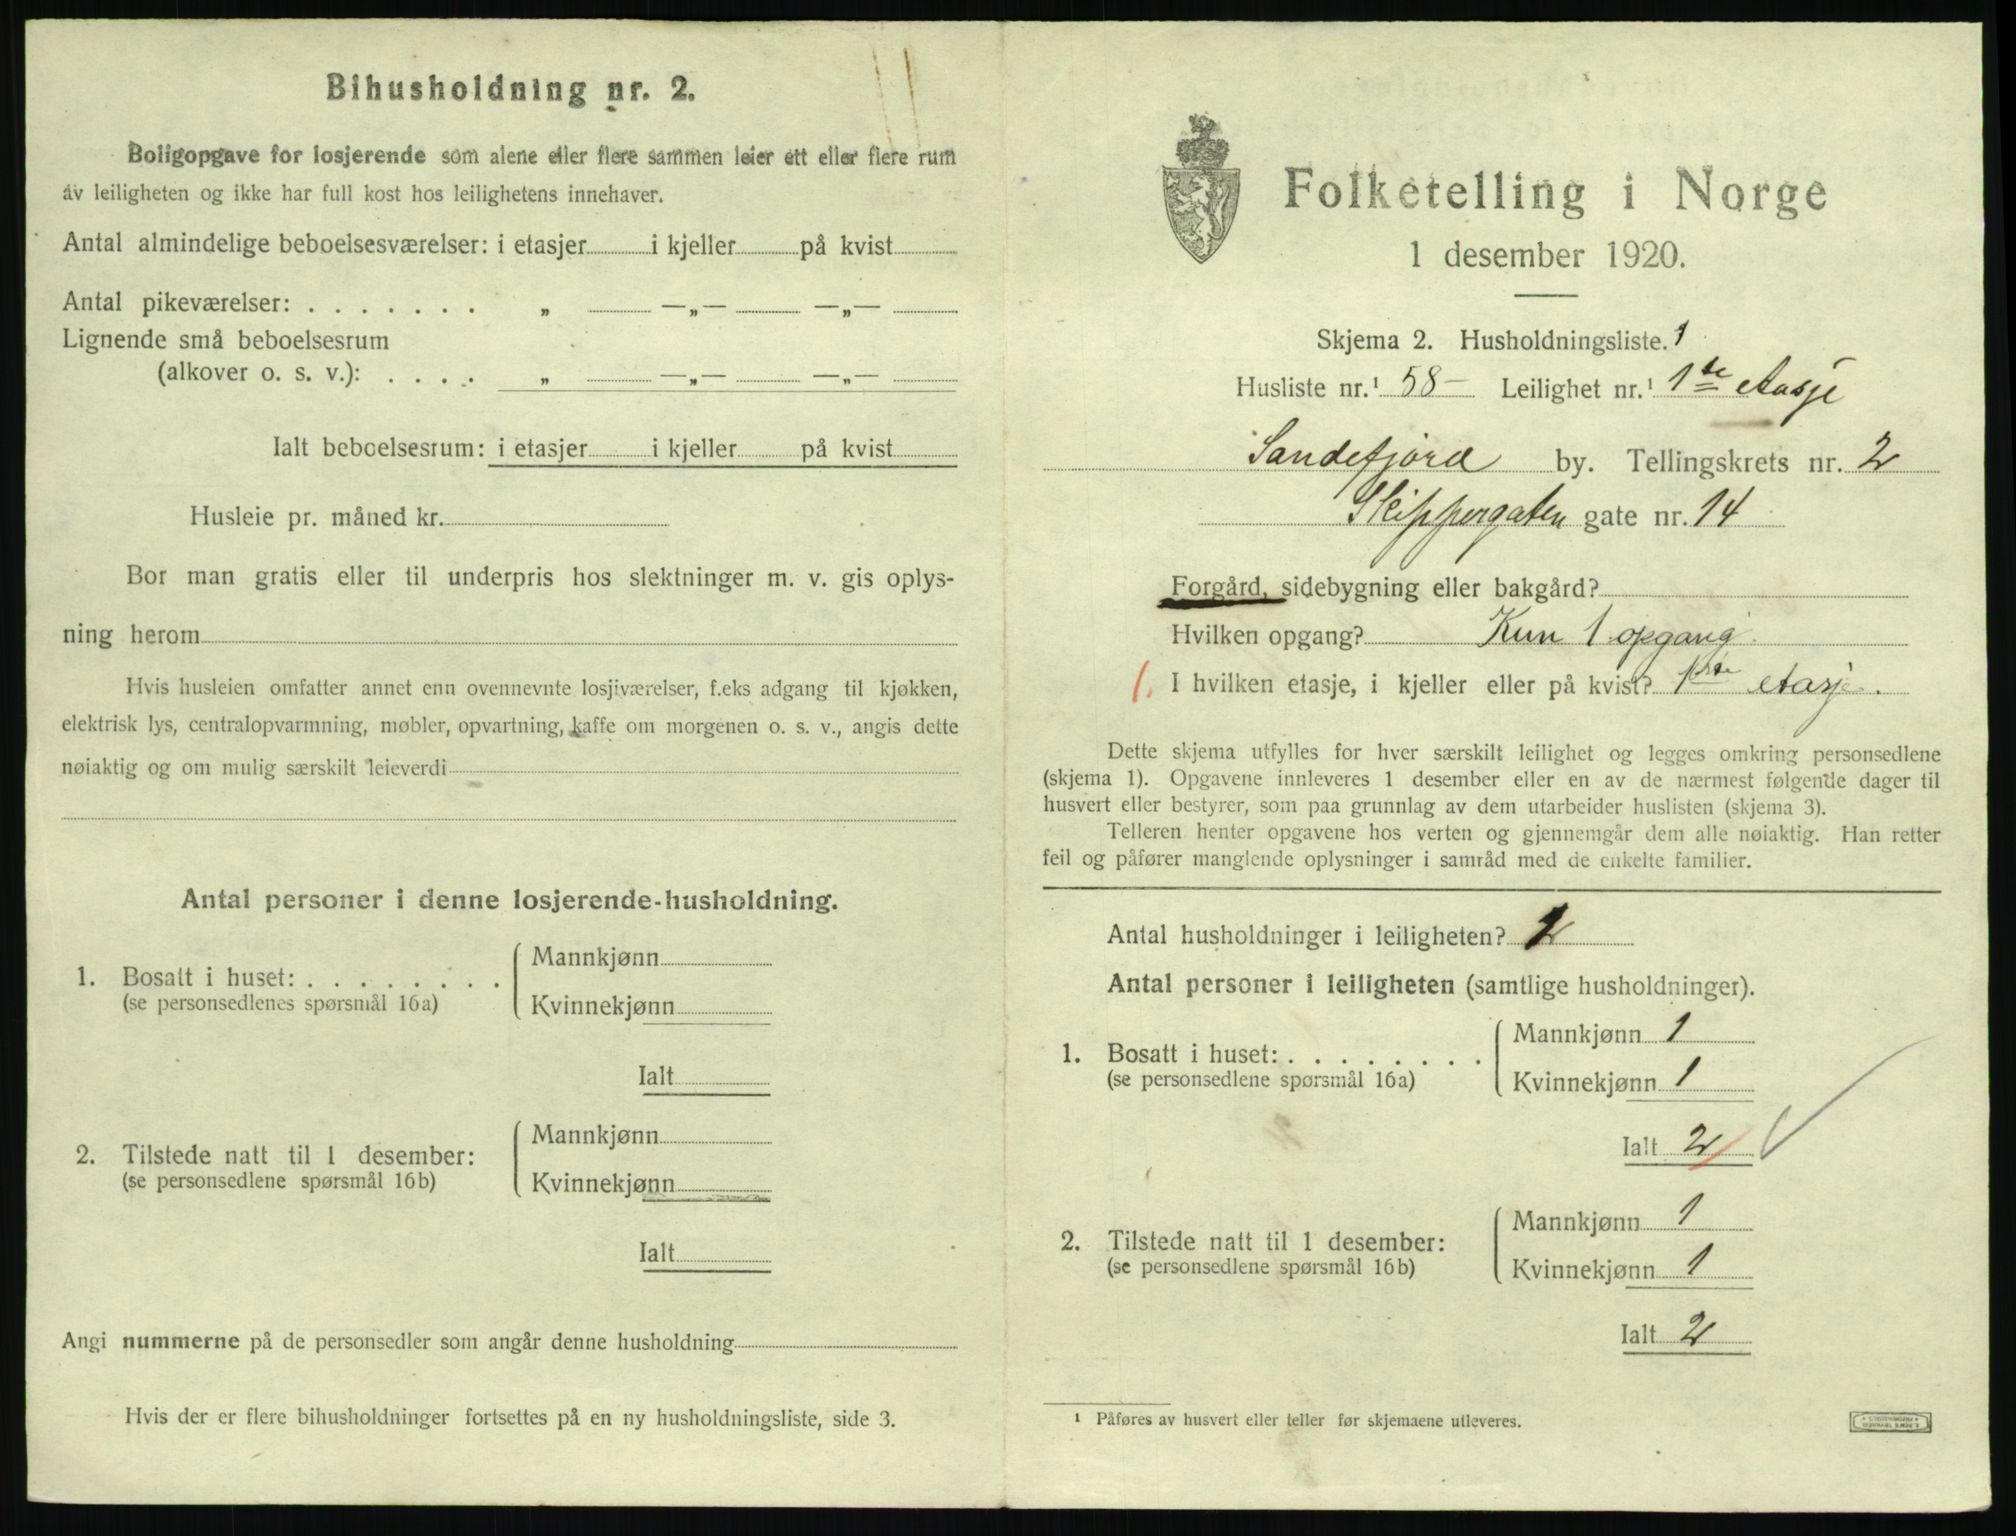 Bihusholdning nr. 2.
Boligopgave for losjerende som alene eller flere sammen leier ett eller flere rum
av leiligheten og ikke har full kost hos leilighetens innehaver.
Antal almindelige beboelsesværelser: i etasjer i kjeller på kvist
Antal pikeværelser: . . . . . . . „ —„— —„—
Lignende små beboelsesrum
(alkover o. s. v.): . . . . „ —„— —„—
Ialt beboelsesrum: i etasjer i kjeller på kvist
Husleie pr. måned kr.
Bor man gratis eller til underpris hos slektninger m. v. gis oplys-
ning herom
Hvis husleien omfatter annet enn ovennevnte losjiværelser, f.eks adgang til kjøkken,
elektrisk lys, centralopvarmning, møbler, opvartning, kaffe om morgenen o. s. v., angis dette
nøiaktig og om mulig særskilt leieverdi
Antal personer i denne losjerende-husholdning.
1. Bosatt i huset: . . . . . . . .
(se personsedlenes spørsmål 16a)
Mannkjønn
Kvinnekjønn
Ialt
2. Tilstede natt til 1 desember:
(se personsedlene spørsmål 16b)
Mannkjønn
Kvinnekjønn
Ialt
Angi nummerne på de personsedler som angår denne husholdning
Hvis der er flere bihusholdninger fortsettes på en ny husholdningsliste, side 3.
Folketelling i Norge
1 desember 1920.
Skjema 2. Husholdningsliste. 1
Husliste nr.¹ 58 - Leilighet nr.¹ 1ste etasje
Sandefjord by. Tellingskrets nr. 2
Skippergaten gate nr. 14
Forgård, sidebygning eller bakgård?
Hvilken opgang? Kun 1 opgang
1. I hvilken etasje, i kjeller eller på kvist? 1ste etasje.
Dette skjema utfylles for hver særskilt leilighet og legges omkring personsedlene
(skjema 1). Opgavene innleveres 1 desember eller en av de nærmest følgende dager til
husvert eller bestyrer, som paa grunnlag av dem utarbeider huslisten (skjema 3).
Telleren henter opgavene hos verten og gjennemgår dem alle nøiaktig. Han retter
feil og påfører manglende oplysninger i samråd med de enkelte familier.
Antal husholdninger i leiligheten?
Antal personer i leiligheten (samtlige husholdninger).
1. Bosatt i huset: . . . . . . . .
(se personsedlene spørsmål 16a)
Mannkjønn 1
Kvinnekjønn 1
Ialt 2
2. Tilstede natt til 1 desember:
(se personsedlene spørsmål 16b)
Mannkjønn 1
Kvinnekjønn 1
Ialt 2
¹ Påføres av husvert eller teller før skjemaene utleveres.